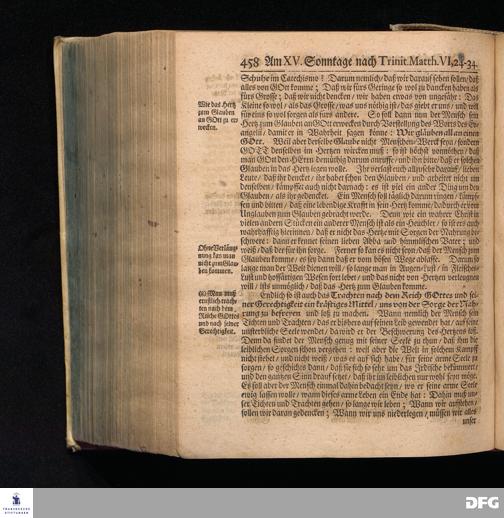 458 Am XV. Sonntage nach Trinit. Matth. VI, 24-34.
Schuhe im Catechismo? Darum nemlich / daß wir darauf sehen sollen / daß
alles von GOtt komme; Daß wir fürs Geringe so wol zu dancken haben als
fürs Grosse; daß wir nicht dencken / wir haben etwas von ungefähr: Das
Kleine so wol / als das Grosse / was uns nöthig ist / das giebt er uns / und will
für eins so wol sorgen als fürs andere. So soll dann nun der Mensch sein
Hertz zum Glauben an GOtt erwecken durch Vorstellung des Worts des Ev-
angelii / damit er in Wahrheit sagen könne: Wir gläuben all an einen
GOtt. Weil aber derselbe Glaube nicht Menschen-Werck ist /
GOTT denselben im Hertzen würcken muß: so ist höchst vonnöthen / daß
man GOtt den HErrn demüthig darum anruffe / und ihn bitte / daß er solchen
Glauben in das Hertz legen wolle. Ihr verlaßt euch allzusehr darauf / lieben
Leute / daß ihr dencket / ihr habet schon den Glauben / und arbeitet nicht um
denselben / kämpffet auch nicht darnach: es ist viel ein ander Ding um den
Glauben / als ihr gedencket. Ein Mensch soll täglich darum ringen / kämpf-
fen und bitten / daß eine lebendige Krafft in sein Hertz komme / dadurch er vom
Unglauben zum Glauben gebracht werde. Denn wie ein wahrer Christ in
vielen andern Stücken ein anderer Mensch ist als ein Heuchler / so ist ers auch
wahrhafftig hierinnen / daß er nicht das Hertze mit Sorgen der Nahrung be-
schweret: dann er kennet seinen lieben Abba und himmlischen Vater; und
weiß / daß der für ihn sorge. Ferner so kan es nicht seyn / daß der Mensch zum
Glauben komme / es sey dann daß er vom bösen Wege ablasse. Darum so
lange man der Welt dienen will / so lange man in Augen-Lust / in Fleisches-
Lust und hoffärtigen Wesen fort lebet / und das nicht von Hertzen verleugnen
will / ists unmöglich / daß das Hertz zum Glauben komme.
Endlich so ist auch das Trachten nach dem Reich GOttes und sei-
ner Gerechtigkeit ein kräftiges Mittel / uns von der Sorge der Nah-
rung zu befreyen und loß zu machen. Wann nemlich der Mensch sein
Tichten und Trachten / das er bishero auf seinen Leib gewendet hat / auf seine
unsterbliche Seele wendet / da wird er der Beschwerung des Hertzens loß.
Dem da findet der Mensch genug mit seiner Seele zu thun / daß ihm die
leiblichen Sorgen schon vergehen: weil aber die Welt in solchem Kampff
nicht stehet / und nicht weiß / was es auf sich habe / für seine arme Seele zu
sorgen / so geschichts dann / daß sie sich so sehr um das Irdische bekümmert /
und den gantzen Sinn drauf setzet / daß ihr im leiblichen nur wohl seyn möge.
Es soll aber der Mensch einmal dahin bedacht seyn / wo er seine arme Seele
ewig lassen wolle / wann dieses arme Leben ein Ende hat: Dahin muß un-
ser Tichten und Trachten gehen / so lange wir leben; Wann wir aufstehen /
sollen wir daran gedencken; Wann wir uns niederlegen / müssen wir alles
unser
Wie das Hertz
zum Glauben
an GOtt zu er-
wecken.
Ohne Verläug-
nung kan man
nicht zum Glau-
ben kommen.
Man muß
ernstlich trach-
ten nach dem
Reiche GOttes
und nach seiner
Gerechtigkeit.
FRANCKESCHE
STIFTUNGEN
DFG